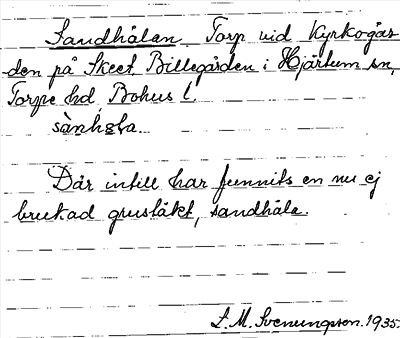 Sandhålan. Torp vid Kyrkogår-
den på Skeet, Billegården i Hjärtum sn,
Torpe hd, Bohus l.
sànhɞla.
Där intill har funnits en nu ej
brukad grustäkt, sandhåla.
L. M. Svenungsson. 1935.